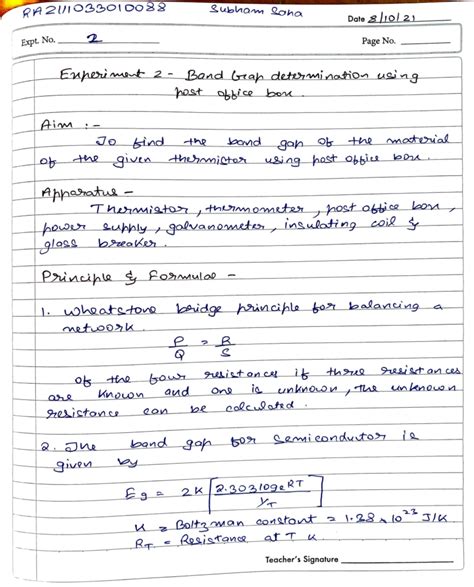 RA2111033010088 Subham Saha
Date 8/10/21
Expt. No. 2
Page No.
Experiment 2 - Band Gap determination using
post office box.
Aim :-
To find the band gap of the material
of the given thermistor using post office box.
Apparatus -
Thermistor, thermometer, post office box,
power supply, galvanometer, insulating coil &
glass breaker.
Principle & Formulae -
1. Wheatstone bridge principle for balancing a
network.
P/Q = R/S
Of the four resistances if three resistances
are known and one is unknown, the unknown
resistance can be calculated.
2. The band gap for semiconductor is
given by
Eg = 2K [2.303 log e RT / 1/T]
K = Boltzman constant = 1.38 x 10^23 J/K
RT = Resistance at T K
Teacher's Signature